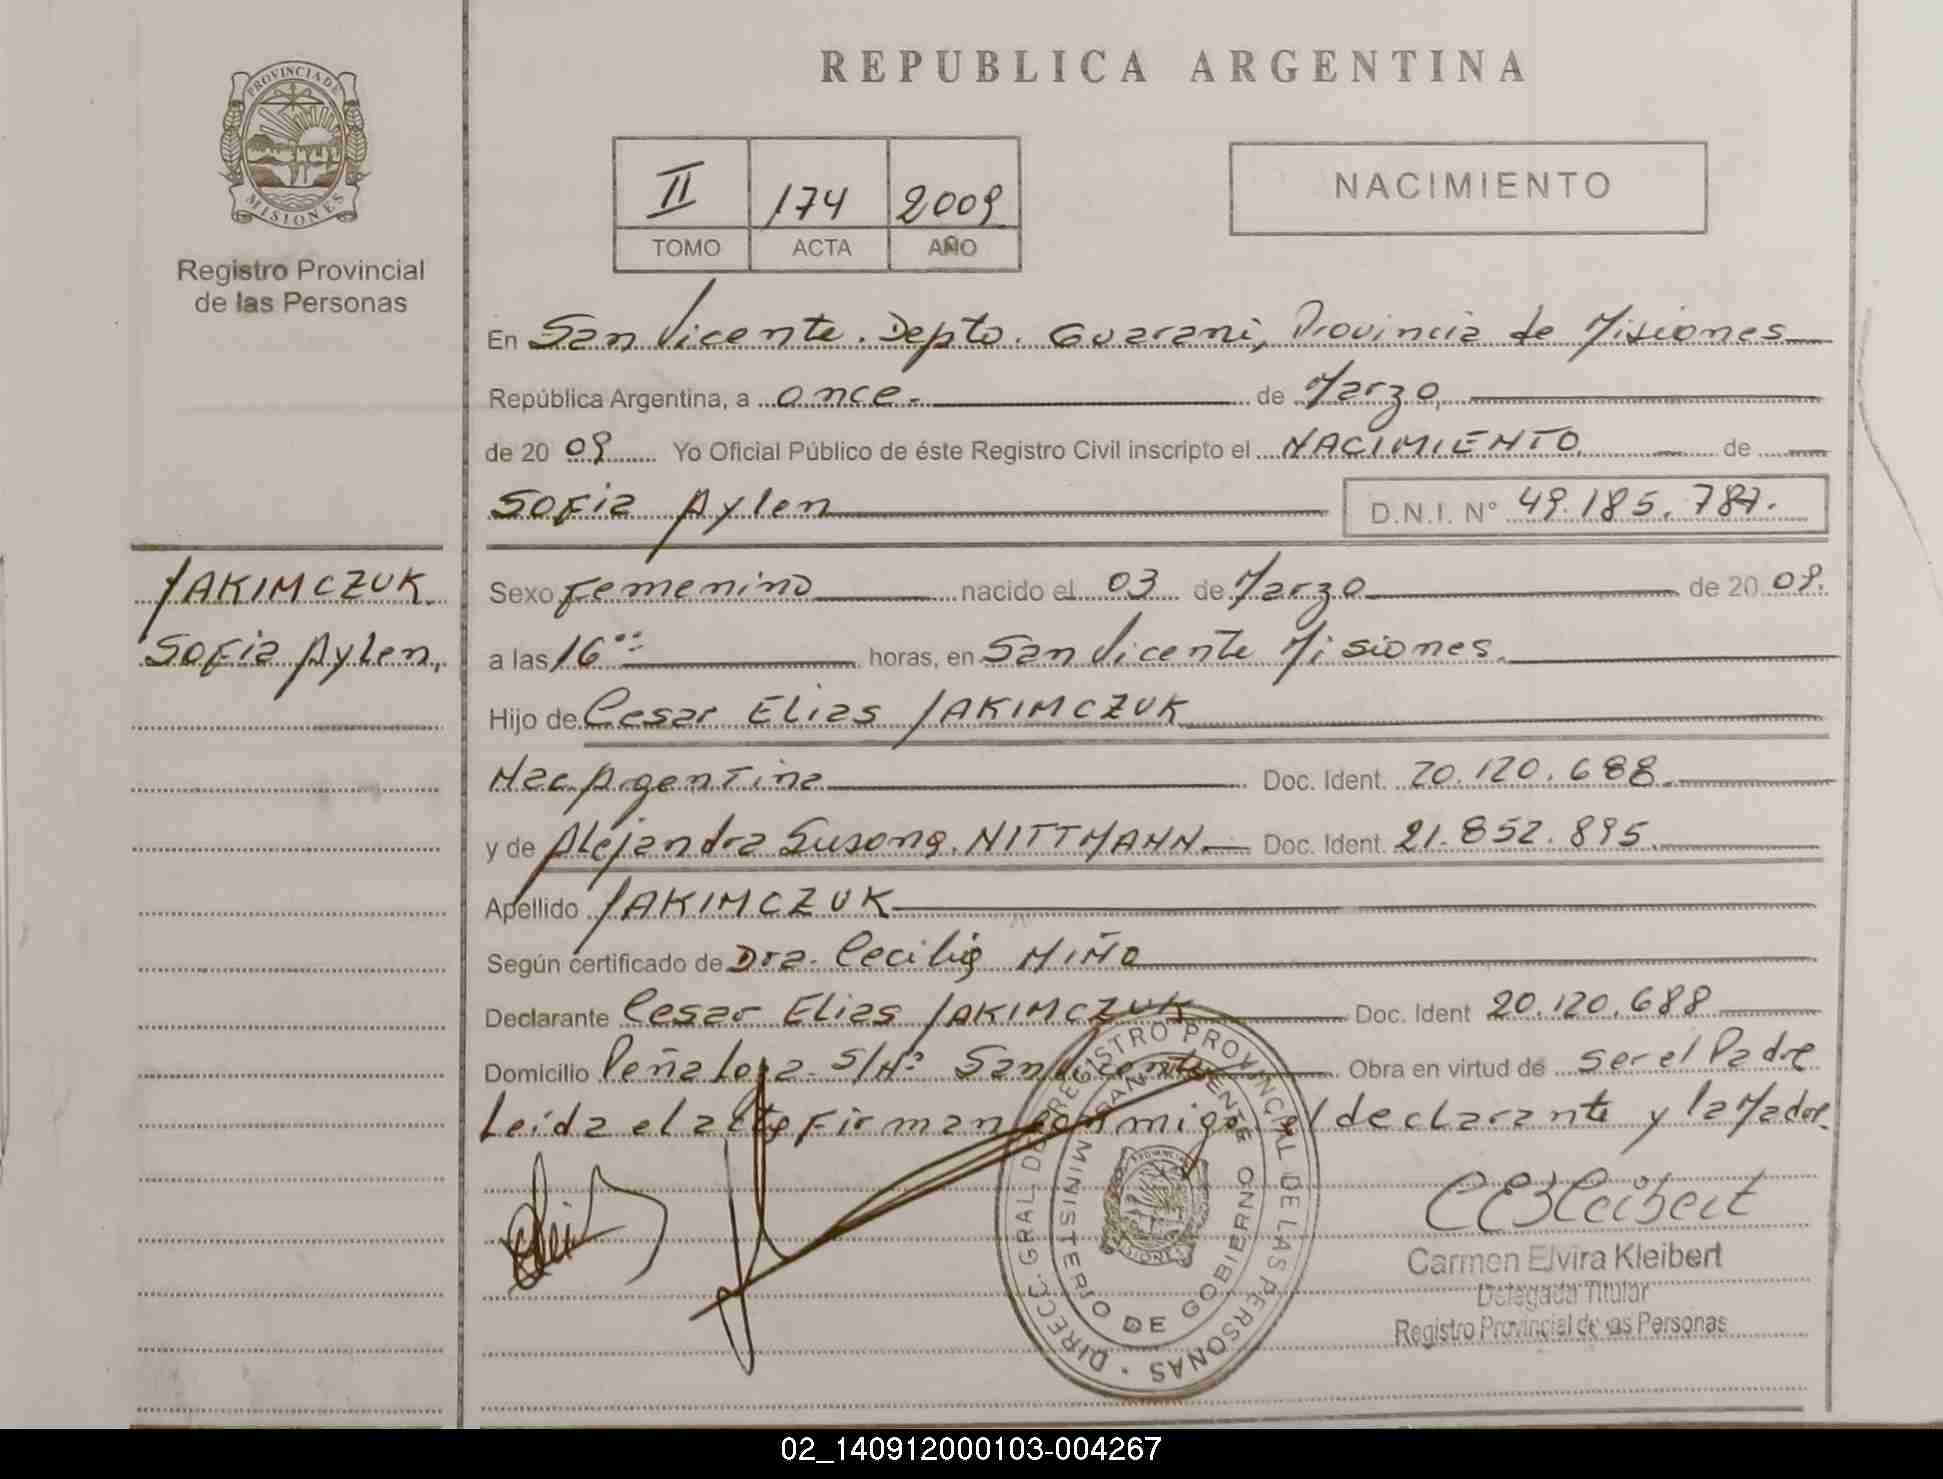 REPUBLICA ARGENTINA
PROVINCIA DE
MISIONES
Registro Provincial
de las Personas
II 174 2009
TOMO ACTA AÑO
NACIMIENTO
En San Vicente. Depto. Guarani, Provincia de Misiones
República Argentina, a once. de Marzo,
de 20 09 Yo Oficial Público de éste Registro Civil inscripto el NACIMIENTO de
Sofia Aylen D.N.I. N° 49.185.787.
YAKIMCZUK
Sofia Aylen,
Sexo Femenino nacido el 03 de Marzo de 20 09.
a las 16:00 horas, en San Vicente Misiones.
Hijo de Cesar Elias YAKIMCZUK
Nac Argentina Doc. Ident. 20.120.688.
y de Alejandra Susana NITTMANN. Doc. Ident. 21.852.895.
Apellido YAKIMCZUK
Según certificado de Dra. Cecilia MIÑO
Declarante Cesar Elias YAKIMCZUK Doc. Ident 20.120.688
Domicilio Peñaloza S/N° San Vicente Obra en virtud de ser el Padre
Leída el acta firman conmigo el declarante y la Madre.
DIRECC. GRAL. DE REGISTRO PROVINCIAL DE LAS PERSONAS
MINISTERIO DE GOBIERNO
MISIONES
Carmen Elvira Kleibert
Delegada Titular
Registro Provincial de las Personas
02_140912000103-004267